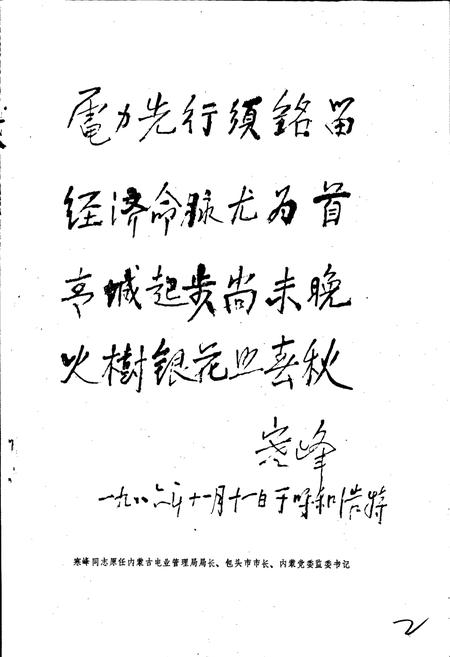 電力先行須銘留
经济命脉尤为首
亭城起步尚未晚
火樹银花照春秋
寒峰
一九八六年十一月十一日于呼和浩特
寒峰同志原任内蒙古电业管理局局长、包头市市长、内蒙党委监委书记
2